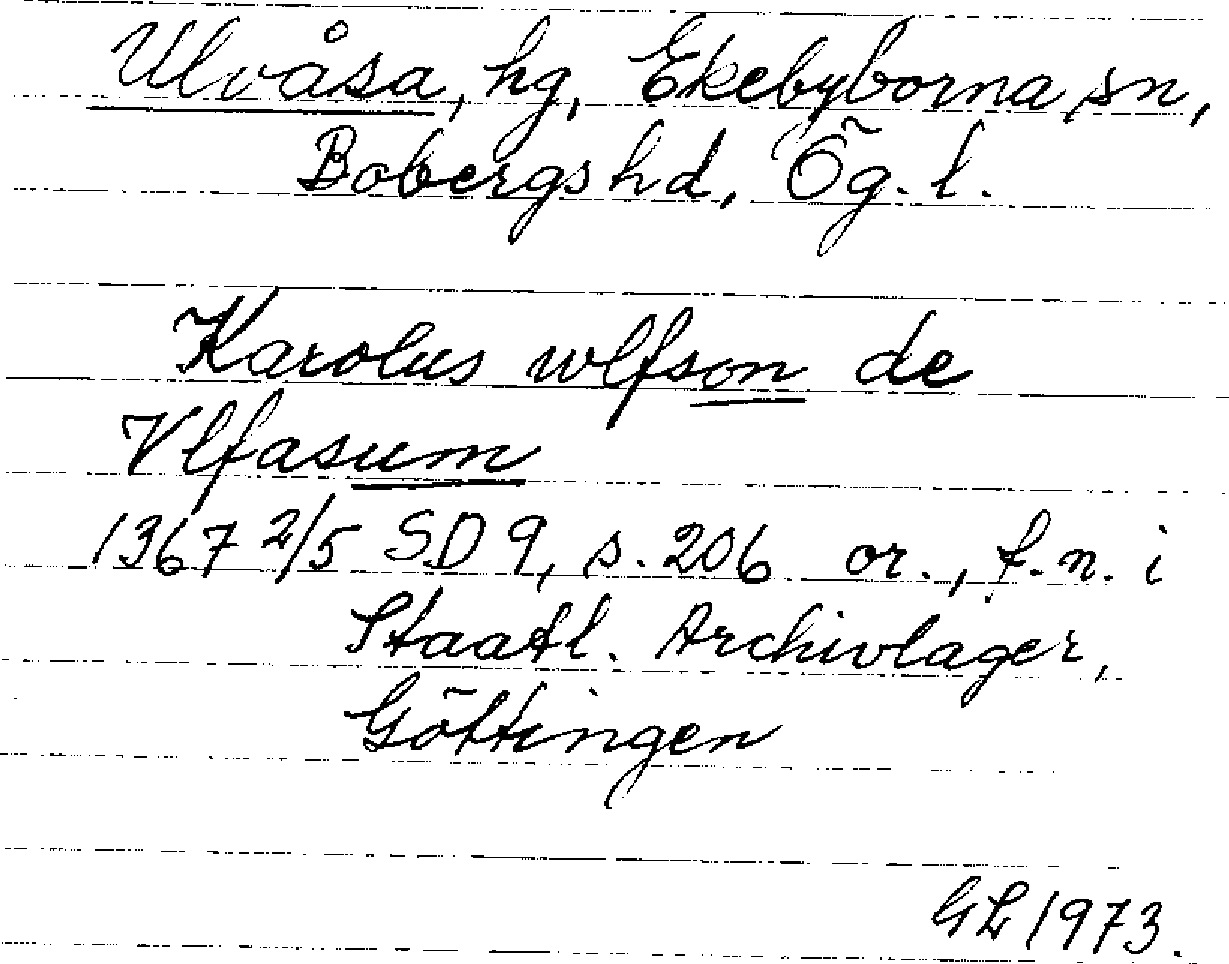 Ulvåsa, hg, Ekebyborna sn,
Bobergs hd, Ög. l.
Karolus wlfson de
Vlfasum
1367 2/5 SD 9, s. 206 or., f.n. i
Staatl. Archivlager,
Göttingen
GL 1973.